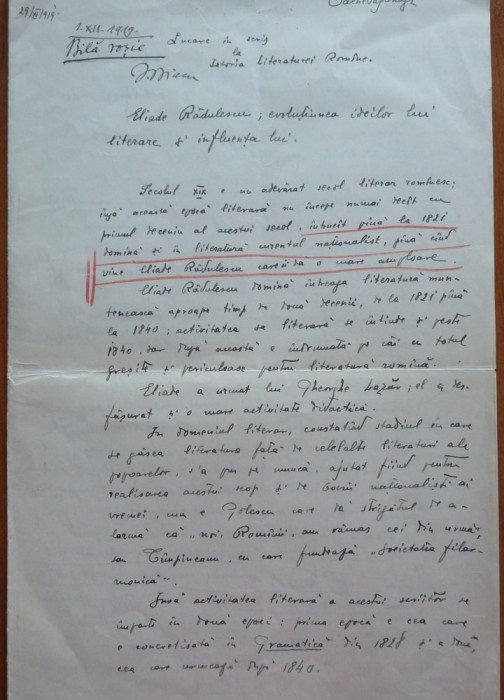 29/XI/1919
1.XII.1919.
Bilă roșie
Lucrare în scris
la
Istoria Literaturei Române.
Eliade Rădulescu; evoluțiunea ideilor lui
literare și influența lui.
Secolul XIX e un adevărat secol literar românesc;
însă această epocă literară nu începe numai decît cu
primul deceniu al acestui secol, întrucît pînă la 1821
domină și în literatură curentul naționalist, pînă cînd
vine Eliade Rădulescu care-i da o mare amploare.
Eliade Rădulescu domină întreaga literatură mun-
tenească aproape timp de două decenii, de la 1821 pînă
la 1840; activitatea sa literară se întinde și peste
1840, dar după aceasta e îndrumată pe căi cu totul
greșite și periculoase pentru literatură română.
Eliade a urmat lui Gheorghe Lazăr; el a des-
fășurat și o mare activitate didactică.
În domeniul literar, constatînd stadiul în care
se găsea literatura față de celelalte literaturi ale
popoarelor, s'a pus pe muncă, ajutat fiind pentru
realisarea acestui scop și de boerii naționaliști ai
vremei, cum e Golescu care da strigătul de a-
larmă că „noi, Românii, am rămas cei din urmă",
sau Cîmpineanu, cu care fundează „Societatea filar-
monică".
Însă activitatea literară a acestui scriitor se
împarte în două epoci: prima epocă e cea care
e concretisată în Gramatică din 1828 și a doua,
cea care urmează după 1840.